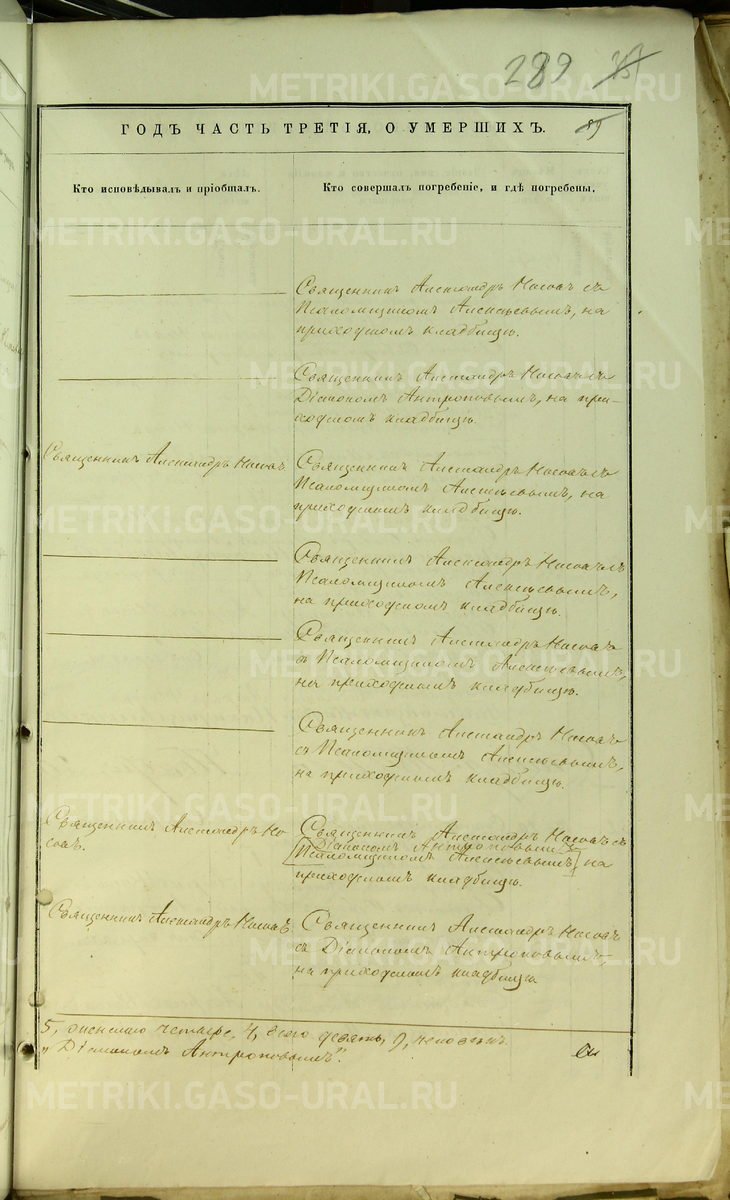 289
ГОДѢ ЧАСТЬ ТРЕТІЯ, О УМЕРШИХЪ.
85
Кто исповѣдывалъ и пріобщалъ.
Кто совершалъ погребеніе, и гдѣ погребены.
Священникъ Александръ Носовъ съ
Псаломщикомъ Алексѣевымъ, на
приходскомъ кладбищѣ.
Священникъ Александръ Носовъ съ
Діакономъ Антроповымъ, на при-
ходскомъ кладбищѣ.
Священникъ Александръ Носовъ.
Священникъ Александръ Носовъ съ
Псаломщикомъ Алексѣевымъ, на
приходскомъ кладбищѣ.
Священникъ Александръ Носовъ съ
Псаломщикомъ Алексѣевымъ,
на приходскомъ кладбищѣ.
Священникъ Александръ Носовъ
съ Псаломщикомъ Алексѣевымъ,
на приходскомъ кладбищѣ.
Священникъ Александръ Носовъ
съ Псаломщикомъ Алексѣевымъ,
на приходскомъ кладбищѣ.
Священникъ Александръ Но-
совъ.
Священникъ Александръ Носовъ съ
Діакономъ Антроповымъ
[Псаломщикомъ Алексѣевымъ] на
приходскомъ кладбищѣ.
Священникъ Александръ Носовъ.
Священникъ Александръ Носовъ
съ Діакономъ Антроповымъ,
на приходскомъ кладбищѣ
5, женскаго четыре, 4, всего девять, 9,
„Діакономъ Антроповымъ".
METRIKI.GASO-URAL.RU